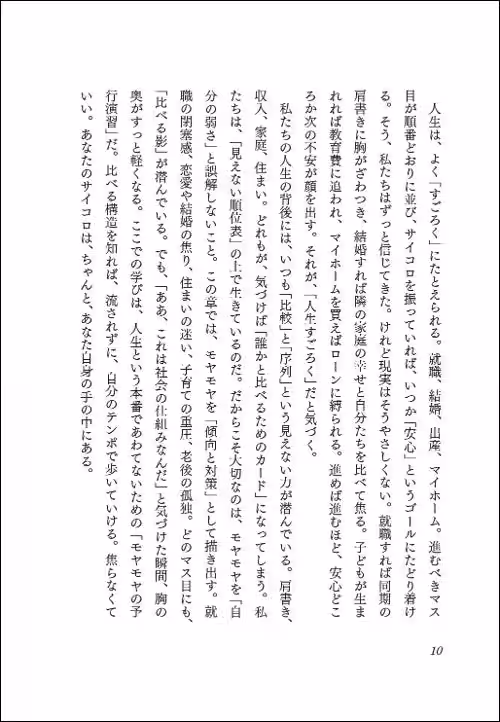 人生は、よく「すごろく」にたとえられる。就職、結婚、出産、マイホーム。進むべきマス
目が順番どおりに並び、サイコロを振っていれば、いつか「安心」というゴールにたどり着け
る。そう、私たちはずっと信じてきた。けれど現実はそうやさしくない。就職すれば同期の
肩書きに胸がざわつき、結婚すれば隣の家庭の幸せと自分たちを比べて焦る。子どもが生ま
れれば教育費に追われ、マイホームを買えばローンに縛られる。進めば進むほど、安心どこ
ろか次の不安が顔を出す。それが、「人生すごろく」だと気づく。
私たちの人生の背後には、いつも「比較」と「序列」という見えない力が潜んでいる。肩書き、
収入、家庭、住まい。どれもが、気づけば「誰かと比べるためのカード」になってしまう。私
たちは、「見えない順位表」の上で生きているのだ。だからこそ大切なのは、モヤモヤを「自
分の弱さ」と誤解しないこと。この章では、モヤモヤを「傾向と対策」として描き出す。就
職の閉塞感、恋愛や結婚の焦り、住まいの迷い、子育ての重圧、老後の孤独。どのマス目にも、
「比べる影」が潜んでいる。でも、「ああ、これは社会の仕組みなんだ」と気づけた瞬間、胸の
奥がすっと軽くなる。ここでの学びは、人生という本番であわてないための「モヤモヤの予
行演習」だ。比べる構造を知れば、流されずに、自分のテンポで歩いていける。焦らなくて
いい。あなたのサイコロは、ちゃんと、あなた自身の手の中にある。
10